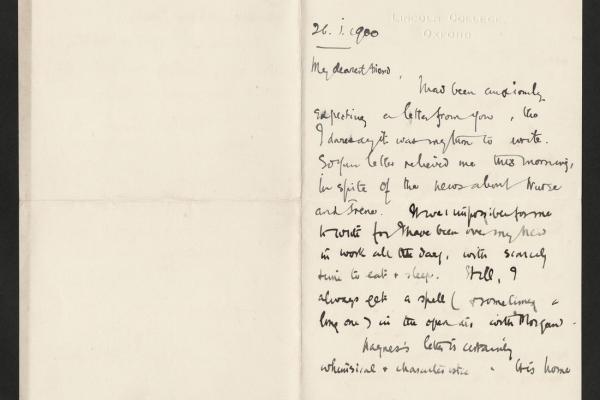 LINCOLN COLLEGE,
OXFORD.
26. i. 1900
My dearest friend,
I had been anxiously
expecting a letter from you, tho
I daresay it was my turn to write.
So your letter relieved me this morning,
in spite of the news about Nurse
and Irene. It was impossible for me
to write for I have been over my head
in work all the day, with scarcely
time to eat + sleep. Still, I
always get a spell ( + sometimes a
long one) in the open air with Morgan.
letter is certainly
whimsical + characteristic. home